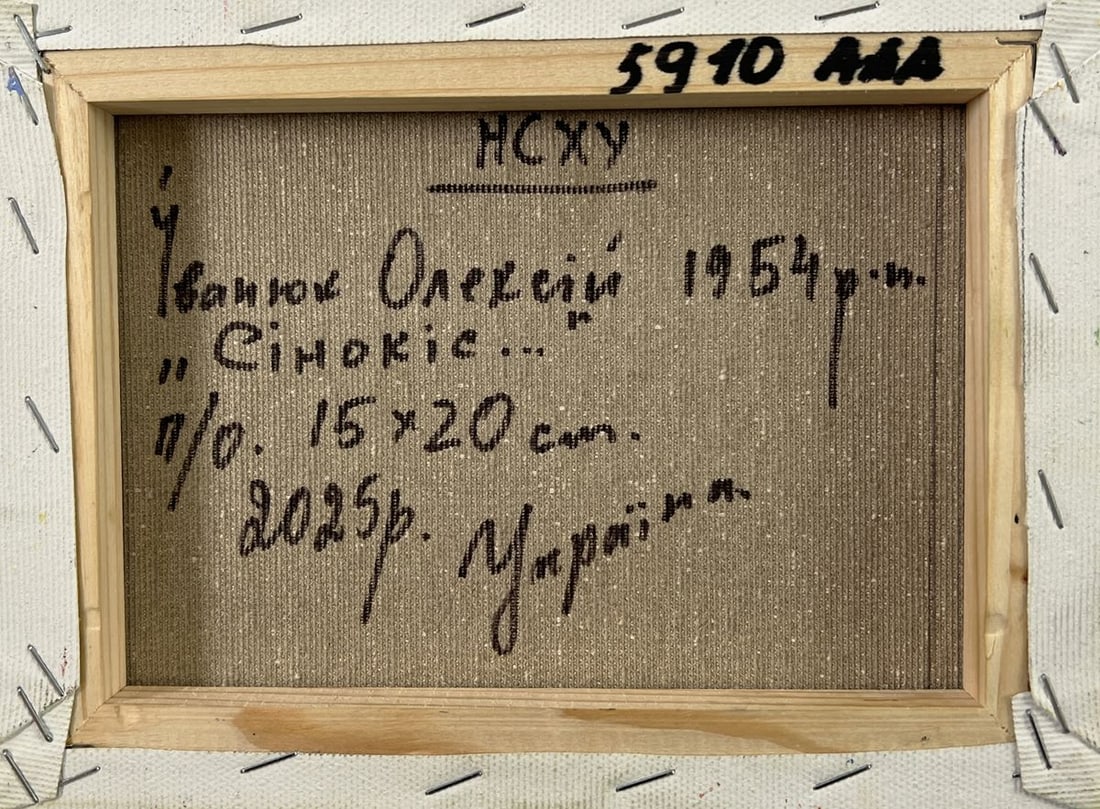 5910 ААА
НСХУ
Іванюк Олексій 1954 р.н.
„Сінокіс..."
п/о. 15х20 см.
2025р. Україна.